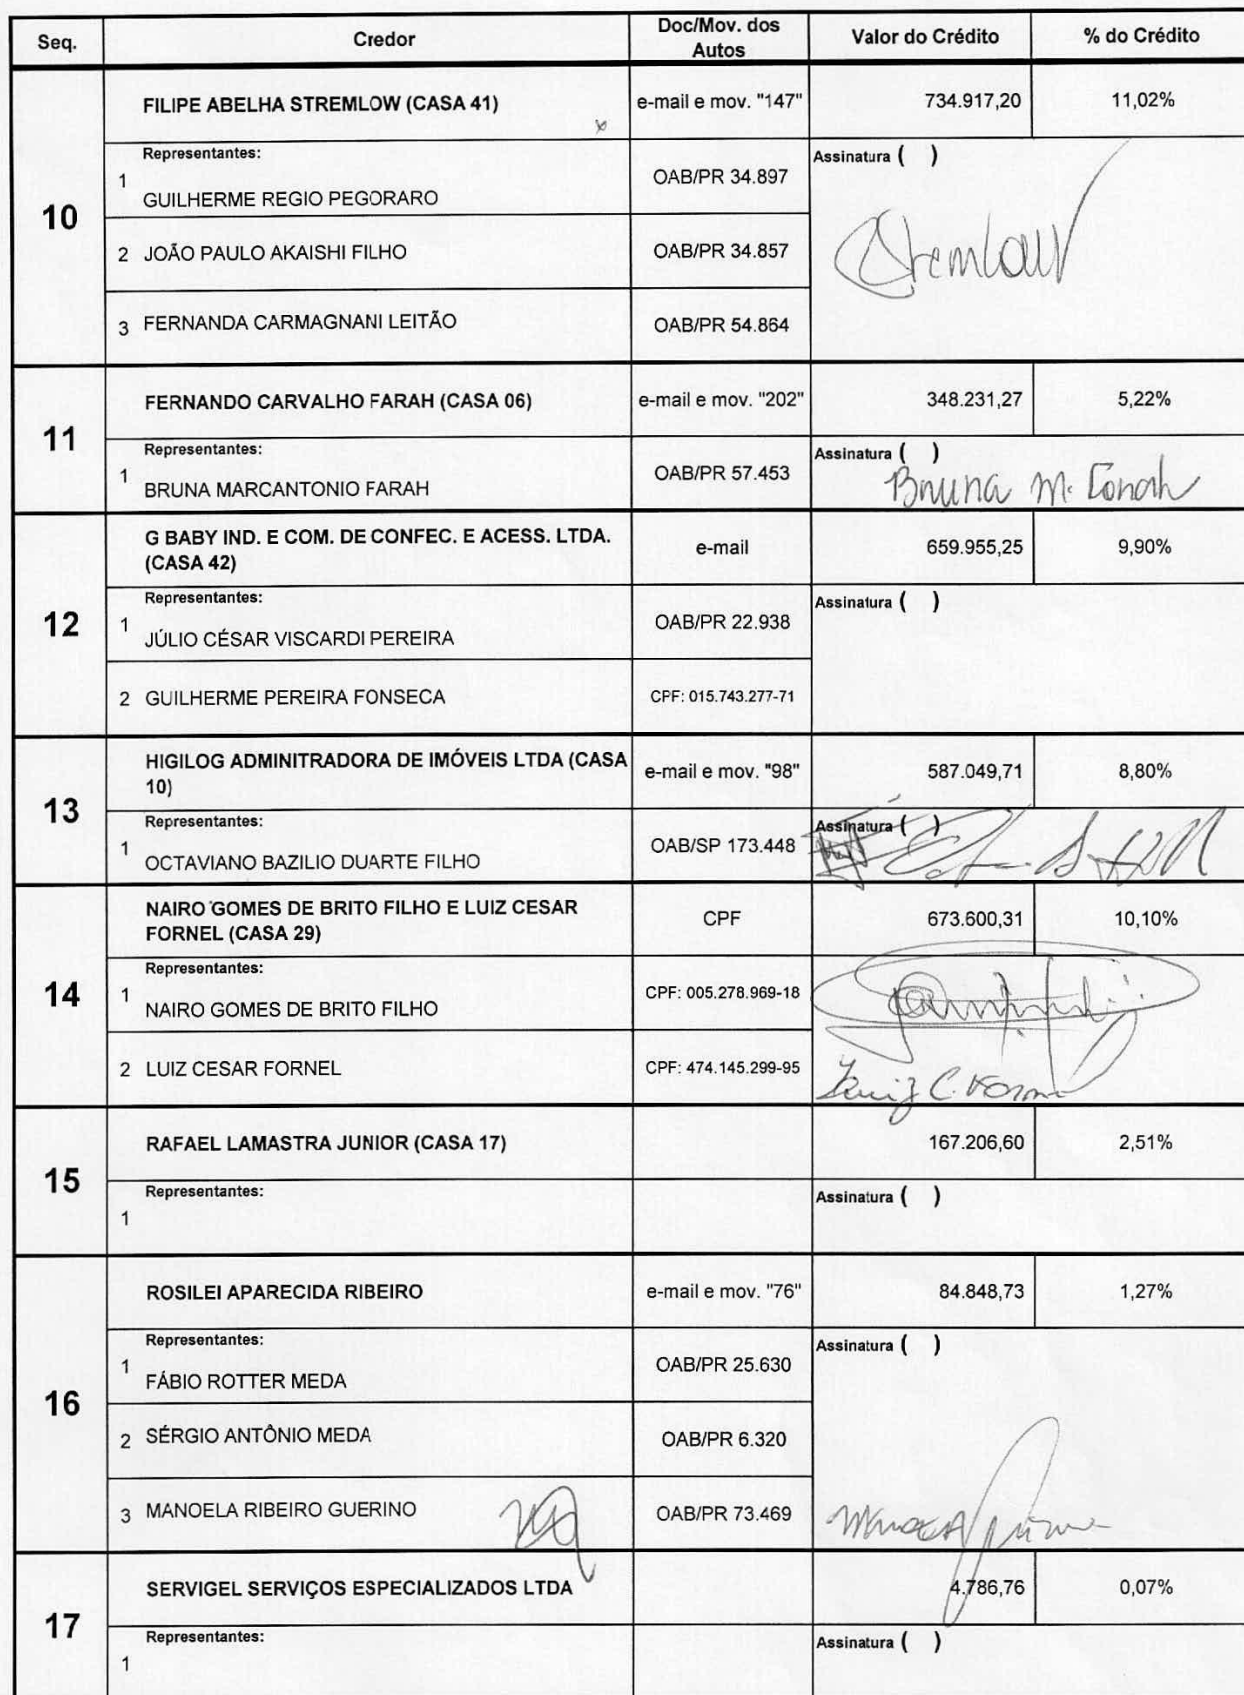 Seq. Credor Doc/Mov. dos Autos Valor do Crédito % do Crédito
10
FILIPE ABELHA STREMLOW (CASA 41) e-mail e mov. "147" 734.917,20 11,02%
Representantes: Assinatura ( )
1 GUILHERME REGIO PEGORARO OAB/PR 34.897
Stremlow
2 JOÃO PAULO AKAISHI FILHO OAB/PR 34.857
3 FERNANDA CARMAGNANI LEITÃO OAB/PR 54.864
11
FERNANDO CARVALHO FARAH (CASA 06) e-mail e mov. "202" 348.231,27 5,22%
Representantes: Assinatura ( )
1 BRUNA MARCANTONIO FARAH OAB/PR 57.453
Bruna M. Farah
12
G BABY IND. E COM. DE CONFEC. E ACESS. LTDA.
(CASA 42) e-mail 659.955,25 9,90%
Representantes: Assinatura ( )
1 JÚLIO CÉSAR VISCARDI PEREIRA OAB/PR 22.938
2 GUILHERME PEREIRA FONSECA CPF: 015.743.277-71
13
HIGILOG ADMINITRADORA DE IMÓVEIS LTDA (CASA
10) e-mail e mov. "98" 587.049,71 8,80%
Representantes: Assinatura ( )
1 OCTAVIANO BAZILIO DUARTE FILHO OAB/SP 173.448
14
NAIRO GOMES DE BRITO FILHO E LUIZ CESAR
FORNEL (CASA 29) CPF 673.600,31 10,10%
Representantes:
1 NAIRO GOMES DE BRITO FILHO CPF: 005.278.969-18
2 LUIZ CESAR FORNEL CPF: 474.145.299-95
Luiz C. Fornel
15
RAFAEL LAMASTRA JUNIOR (CASA 17) 167.206,60 2,51%
Representantes: Assinatura ( )
1
16
ROSILEI APARECIDA RIBEIRO e-mail e mov. "76" 84.848,73 1,27%
Representantes: Assinatura ( )
1 FÁBIO ROTTER MEDA OAB/PR 25.630
2 SÉRGIO ANTÔNIO MEDA OAB/PR 6.320
3 MANOELA RIBEIRO GUERINO OAB/PR 73.469
17
SERVIGEL SERVIÇOS ESPECIALIZADOS LTDA 4.786,76 0,07%
Representantes: Assinatura ( )
1